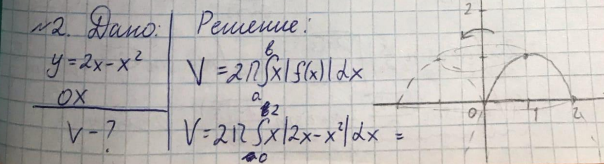 №2. Дано:
y=2x-x²
OX
V-?
Решение:
V=2π∫ₐᵇx|f(x)|dx
V=2π∫₀²x|2x-x²|dx =
2
0 1 2